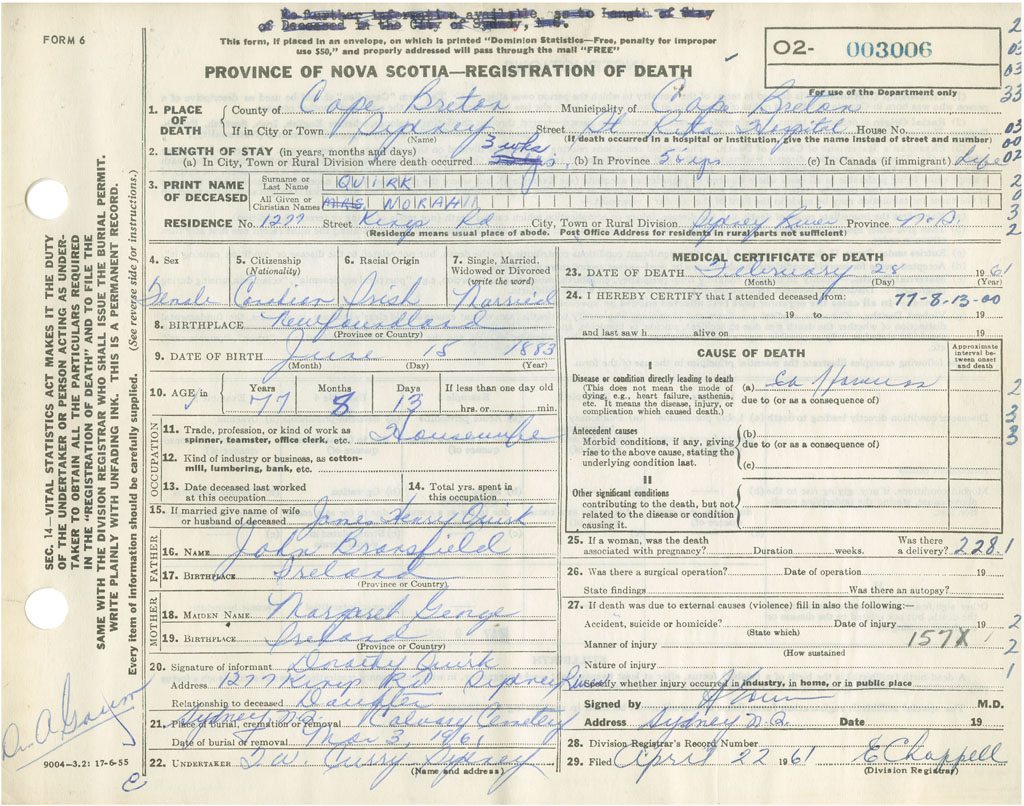 No further information available as to Length of Stay
of Deceased in the City of Sydney, N.S.
FORM 6
This form, if placed in an envelope, on which is printed "Dominion Statistics—Free, penalty for improper
use $50," and properly addressed will pass through the mail "FREE"
02- 003006
For use of the Department only
PROVINCE OF NOVA SCOTIA—REGISTRATION OF DEATH
1. PLACE OF DEATH
County of Cape Breton Municipality of Cape Breton
If in City or Town Sydney Street St Rita Hospital House No.
(Name) (If death occurred in a hospital or institution, give the name instead of street and number)
2. LENGTH OF STAY (in years, months and days)
(a) In City, Town or Rural Division where death occurred 3 wks (b) In Province 56 yrs (c) In Canada (if immigrant) Life
3. PRINT NAME OF DECEASED
Surname or Last Name QUIRK
All Given or Christian Names MRS. NORAH
RESIDENCE No. 1277 Street Kings Rd City, Town or Rural Division Sydney River Province N.S.
(Residence means usual place of abode. Post Office Address for residents in rural parts not sufficient)
4. Sex Female
5. Citizenship (Nationality) Canadian
6. Racial Origin Irish
7. Single, Married, Widowed or Divorced (write the word) Married
8. BIRTHPLACE Newfoundland
(Province or Country)
9. DATE OF BIRTH June 15 1883
(Month) (Day) (Year)
10. AGE in Years 77 Months 8 Days 13 If less than one day old hrs. or min.
OCCUPATION
11. Trade, profession, or kind of work as spinner, teamster, office clerk, etc. Housewife
12. Kind of industry or business, as cotton-mill, lumbering, bank, etc.
13. Date deceased last worked at this occupation
14. Total yrs. spent in this occupation
15. If married give name of wife or husband of deceased James Henry Quirk
FATHER
16. NAME John Bransfield
17. BIRTHPLACE Ireland
(Province or Country)
MOTHER
18. MAIDEN NAME Margaret George
19. BIRTHPLACE Ireland
(Province or Country)
20. Signature of informant Dorothy Quirk
Address 1277 Kings Rd Sydney River
Relationship to deceased Daughter
Sydney N.S.
21. Place of burial, cremation or removal Calvary Cemetery
Date of burial or removal Mar 3, 1961
22. UNDERTAKER T.W. Curry Sydney
(Name and address)
MEDICAL CERTIFICATE OF DEATH
23. DATE OF DEATH February 28 1961
(Month) (Day) (Year)
24. I HEREBY CERTIFY that I attended deceased from: 77-8-13-00
19 to 19
and last saw h alive on 19
CAUSE OF DEATH
Approximate interval between onset and death
I
Disease or condition directly leading to death (a) Ca
(This does not mean the mode of dying, e.g., heart failure, asthenia, etc. It means the disease, injury, or complication which caused death.)
due to (or as a consequence of)
Antecedent causes
Morbid conditions, if any, giving rise to the above cause, stating the underlying condition last.
(b)
due to (or as a consequence of)
(c)
II
Other significant conditions
contributing to the death, but not related to the disease or condition causing it.
25. If a woman, was the death associated with pregnancy? Duration weeks. Was there a delivery? 2281
26. Was there a surgical operation? Date of operation 19
State findings Was there an autopsy?
27. If death was due to external causes (violence) fill in also the following:—
Accident, suicide or homicide? Date of injury 19
(State which)
Manner of injury 157X
(How sustained
Nature of injury
Specify whether injury occurred in industry, in home, or in public place
Signed by M.D.
Address Sydney N.S. Date 19
28. Division Registrar's Record Number
29. Filed April 22 1961 E Chappell
(Division Registrar)
SEC. 14—VITAL STATISTICS ACT MAKES IT THE DUTY
OF THE UNDERTAKER OR PERSON ACTING AS UNDER-
TAKER TO OBTAIN ALL THE PARTICULARS REQUIRED
IN THE "REGISTRATION OF DEATH" AND TO FILE THE
SAME WITH THE DIVISION REGISTRAR WHO SHALL ISSUE THE BURIAL PERMIT.
WRITE PLAINLY WITH UNFADING INK. THIS IS A PERMANENT RECORD.
Every item of information should be carefully supplied. (See reverse side for instructions.)
9004—3.2: 17-6-55